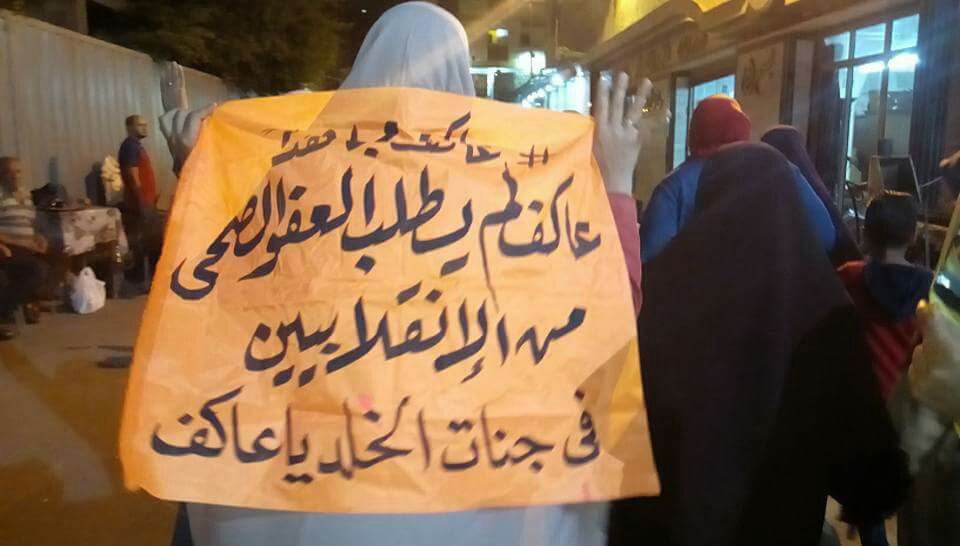 # عاكف ولا فقدا
عاكف لم يطلب العفو الصحى
من الإنقلابيين
فى جنات الخلد يا عاكف